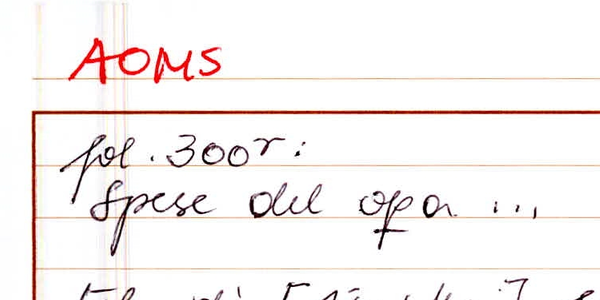 AOMS
fol. 300r:
Spese del opa ...